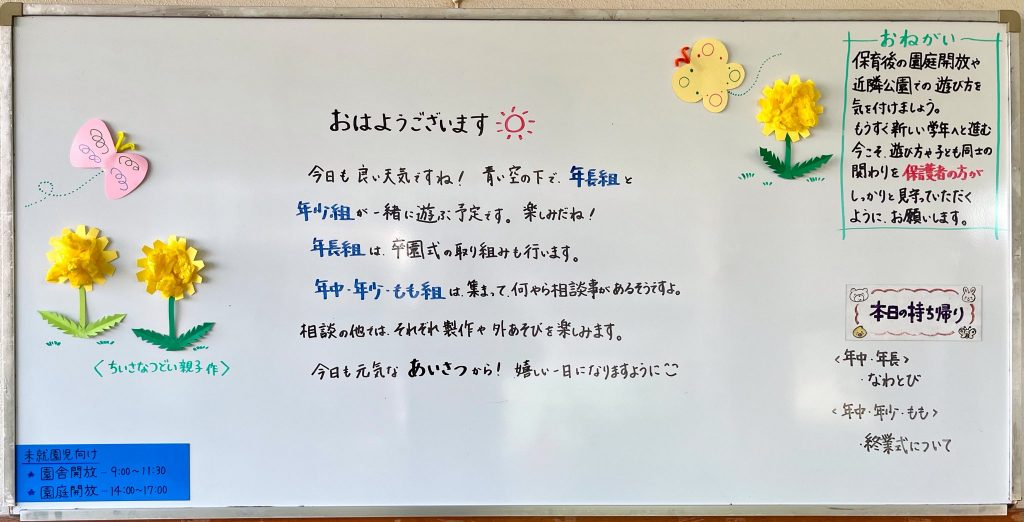 おはようございます
今日も良い天気ですね! 青い空の下で、年長組と
年少組が一緒に遊ぶ予定です。楽しみだね!
年長組は、卒園式の取り組みも行います。
年中・年少・もも組は、集まって、何やら相談事があるそうですよ。
相談の他では、それぞれ製作や外あそびを楽しみます。
今日も元気なあいさつから! 嬉しい一日になりますように
〈ちいさなつどい親子作〉
未就園児向け
★ 園舎開放 - 9:00~11:30
★ 園庭開放 - 14:00~17:00
おねがい
保育後の園庭開放や
近隣公園での遊び方を
気を付けましょう。
もうすぐ新しい学年へと進む
今こそ、遊び方や子ども同士の
関わりを保護者の方が
しっかりと見守っていただく
ように、お願いします。
本日の持ち帰り
〈年中・年長〉
・なわとび
〈年中・年少・もも〉
・終業式について